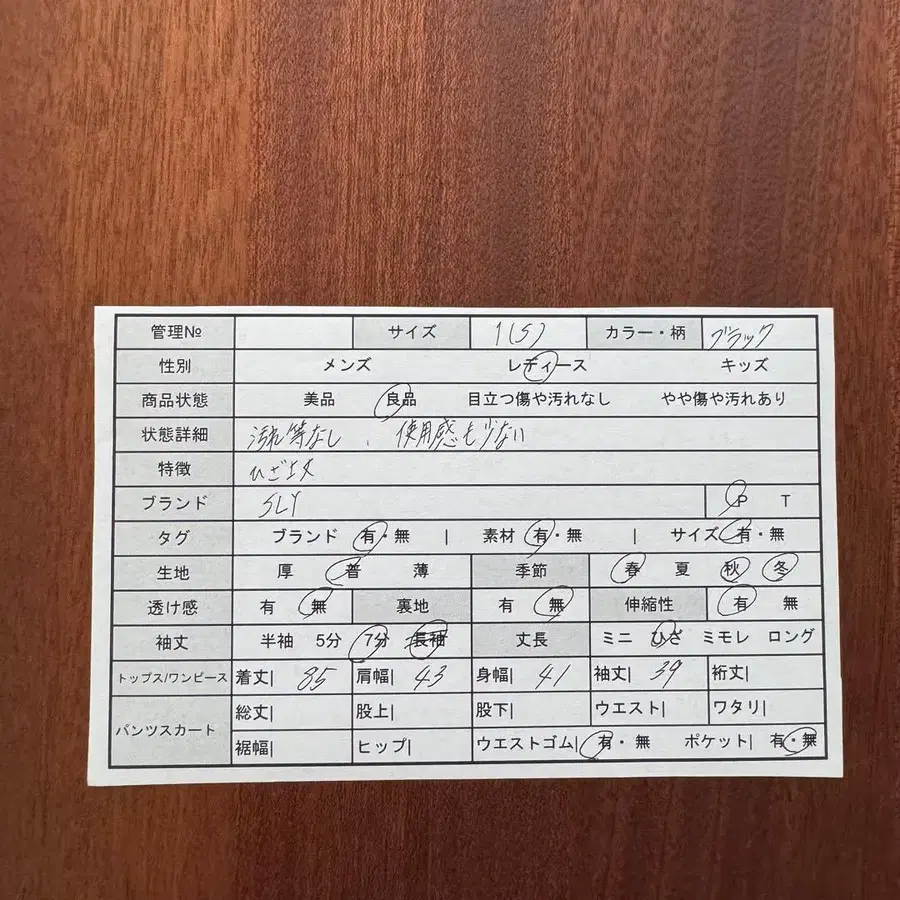 管理№ サイズ 1(S) カラー・柄 ブラック
性別 メンズ レディース キッズ
商品状態 美品 良品 目立つ傷や汚れなし やや傷や汚れあり
状態詳細 汚れ等なし、使用感も少ない
特徴 ひざ丈
ブランド SLY P T
タグ ブランド 有・無 | 素材 有・無 | サイズ 有・無
生地 厚 普 薄 季節 春 夏 秋 冬
透け感 有 無 裏地 有 無 伸縮性 有 無
袖丈 半袖 5分 7分 長袖 丈長 ミニ ひざ ミモレ ロング
トップス/ワンピース 着丈| 85 肩幅| 43 身幅| 41 袖丈| 39 裄丈|
パンツスカート 総丈| 股上| 股下| ウエスト| ワタリ|
裾幅| ヒップ| ウエストゴム| 有・無 ポケット| 有・無